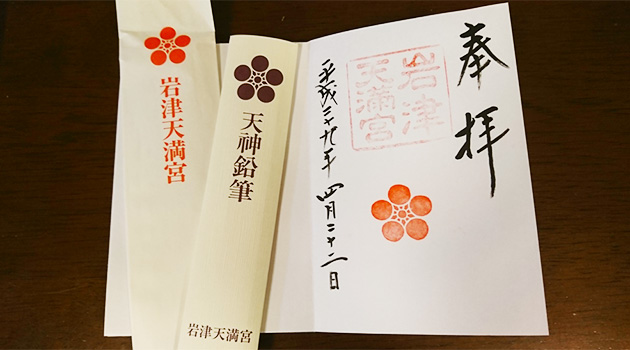 岩津天満宮
天神鉛筆
岩津天満宮
奉拝
岩津
天満宮
平成二十九年 四月二十二日